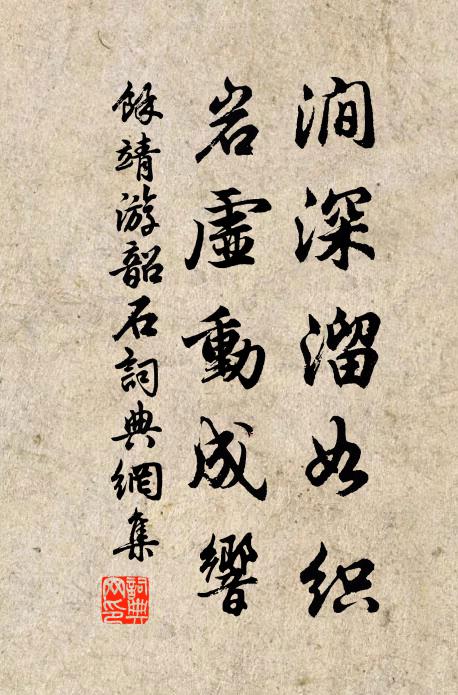 澗深溜如织
岩虛動成響
餘靖游韶石詞典網集
詞典网印